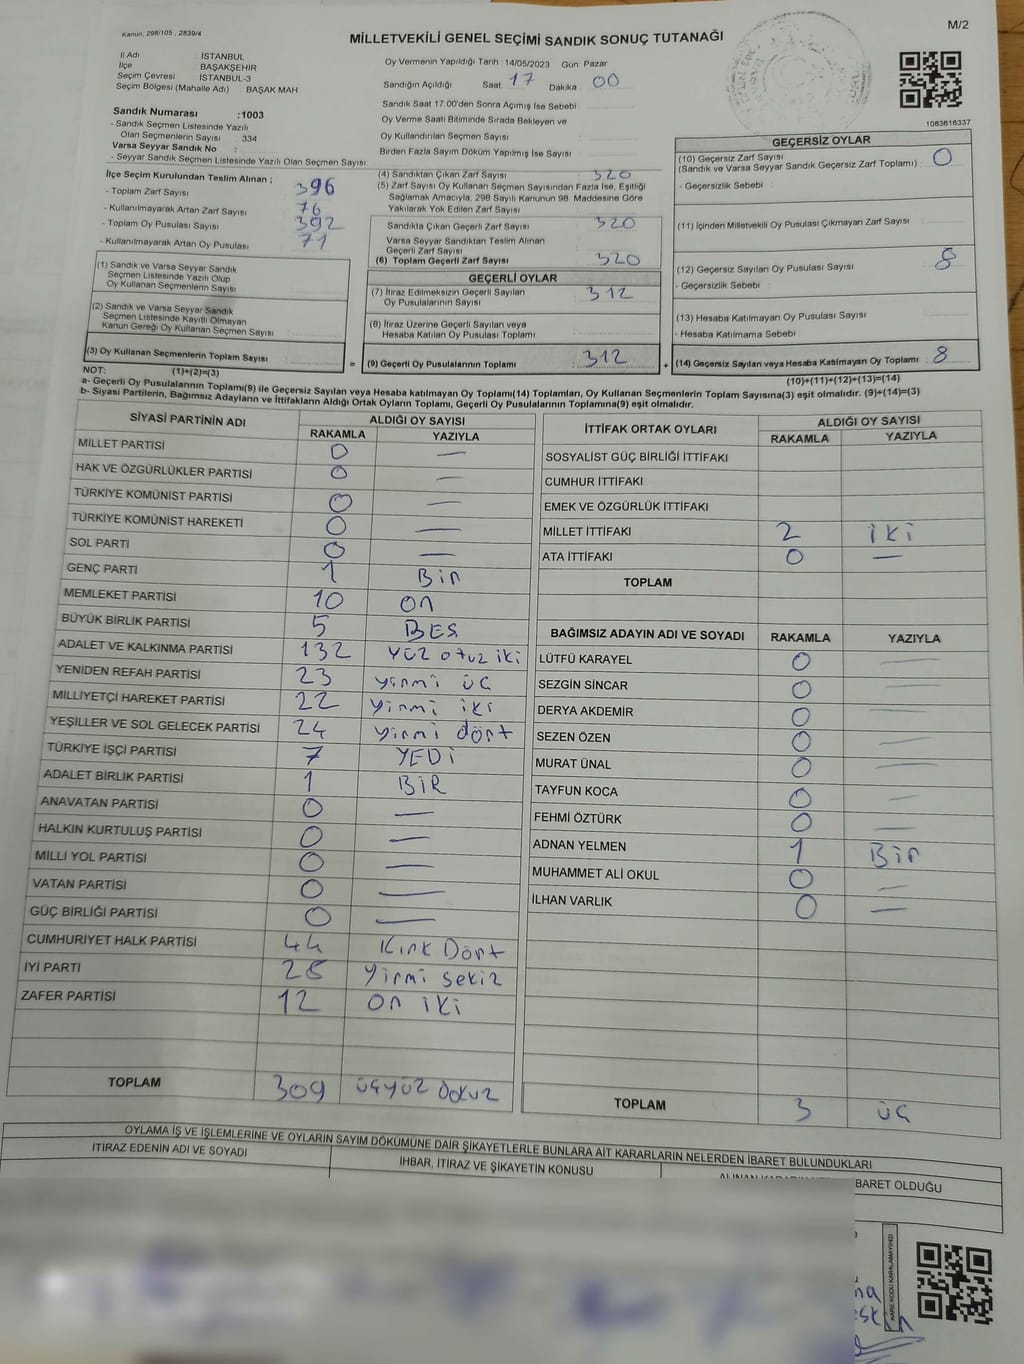 Kanun, 298/105 , 2839/4
M/2
MİLLETVEKİLİ GENEL SEÇİMİ SANDIK SONUÇ TUTANAĞI
İl Adı İSTANBUL
İlçe BAŞAKŞEHİR
Seçim Çevresi İSTANBUL-3
Seçim Bölgesi (Mahalle Adı) : BAŞAK MAH
Sandık Numarası :1003
- Sandık Seçmen Listesinde Yazılı
Olan Seçmenlerin Sayısı 334
Varsa Seyyar Sandık No :
- Seyyar Sandık Seçmen Listesinde Yazılı Olan Seçmen Sayısı
Oy Vermenin Yapıldığı Tarih : 14/05/2023 Gün: Pazar
Sandığın Açıldığı Saat 17 Dakika 00
Sandık Saat 17.00'den Sonra Açımış İse Sebebi
Oy Verme Saati Bitiminde Sırada Bekleyen ve
Oy Kullandırılan Seçmen Sayısı
Birden Fazla Sayım Döküm Yapılmış İse Sayısı
1083616337
İlçe Seçim Kurulundan Teslim Alınan ;
- Toplam Zarf Sayısı 396
- Kullanılmayarak Artan Zarf Sayısı 76
- Toplam Oy Pusulası Sayısı 392
- Kullanılmayarak Artan Oy Pusulası 71
(1) Sandık ve Varsa Seyyar Sandık
Seçmen Listesinde Yazılı Olup
Oy Kullanan Seçmenlerin Sayısı
(2) Sandık ve Varsa Seyyar Sandık
Seçmen Listesinde Kayıtlı Olmayan
Kanun Gereği Oy Kullanan Seçmen Sayısı
(3) Oy Kullanan Seçmenlerin Toplam Sayısı
(4) Sandıktan Çıkan Zarf Sayısı 320
(5) Zarf Sayısı Oy Kullanan Seçmen Sayısından Fazla İse, Eşitliği
Sağlamak Amacıyla, 298 Sayılı Kanunun 98. Maddesine Göre
Yakılarak Yok Edilen Zarf Sayısı
Sandıkta Çıkan Geçerli Zarf Sayısı 320
Varsa Seyyar Sandıktan Teslim Alınan
Geçerli Zarf Sayısı
(6) Toplam Geçerli Zarf Sayısı 320
GEÇERLİ OYLAR
(7) İtiraz Edilmeksizin Geçerli Sayılan
Oy Pusulalarının Sayısı 312
(8) İtiraz Üzerine Geçerli Sayılan veya
Hesaba Katılan Oy Pusulası Toplamı
= (9) Geçerli Oy Pusulalarının Toplamı 312
GEÇERSİZ OYLAR
(10) Geçersiz Zarf Sayısı
(Sandık ve Varsa Seyyar Sandık Geçersiz Zarf Toplamı) : 0
- Geçersizlik Sebebi :
(11) İçinden Milletvekili Oy Pusulası Çıkmayan Zarf Sayısı
(12) Geçersiz Sayılan Oy Pusulası Sayısı 8
- Geçersizlik Sebebi :
(13) Hesaba Katılmayan Oy Pusulası Sayısı
- Hesaba Katılmama Sebebi :
+ (14) Geçersiz Sayılan veya Hesaba Katılmayan Oy Toplamı 8
NOT: (1)+(2)=(3)
(10)+(11)+(12)+(13)=(14)
a- Geçerli Oy Pusulalarının Toplamı(9) ile Geçersiz Sayılan veya Hesaba katılmayan Oy Toplamı(14) Toplamları, Oy Kullanan Seçmenlerin Toplam Sayısına(3) eşit olmalıdır. (9)+(14)=(3)
b- Siyasi Partilerin, Bağımsız Adayların ve İttifakların Aldığı Ortak Oyların Toplamı, Geçerli Oy Pusulalarının Toplamına(9) eşit olmalıdır.
SİYASİ PARTİNİN ADI ALDIĞI OY SAYISI
RAKAMLA YAZIYLA
MİLLET PARTİSİ 0 —
HAK VE ÖZGÜRLÜKLER PARTİSİ 0 —
TÜRKİYE KOMÜNİST PARTİSİ 0 —
TÜRKİYE KOMÜNİST HAREKETİ 0 —
SOL PARTİ 0 —
GENÇ PARTİ 1 Bir
MEMLEKET PARTİSİ 10 on
BÜYÜK BİRLİK PARTİSİ 5 BEŞ
ADALET VE KALKINMA PARTİSİ 132 yüz otuz iki
YENİDEN REFAH PARTİSİ 23 yirmi üç
MİLLİYETÇİ HAREKET PARTİSİ 22 yirmi iki
YEŞİLLER VE SOL GELECEK PARTİSİ 24 yirmi dört
TÜRKİYE İŞÇİ PARTİSİ 7 YEDİ
ADALET BİRLİK PARTİSİ 1 BİR
ANAVATAN PARTİSİ 0 —
HALKIN KURTULUŞ PARTİSİ 0 —
MİLLİ YOL PARTİSİ 0 —
VATAN PARTİSİ 0 —
GÜÇ BİRLİĞİ PARTİSİ 0 —
CUMHURİYET HALK PARTİSİ 44 Kırk Dört
İYİ PARTİ 28 Yirmi sekiz
ZAFER PARTİSİ 12 on iki
TOPLAM 309 üçyüz dokuz
İTTİFAK ORTAK OYLARI ALDIĞI OY SAYISI
RAKAMLA YAZIYLA
SOSYALİST GÜÇ BİRLİĞİ İTTİFAKI
CUMHUR İTTİFAKI
EMEK VE ÖZGÜRLÜK İTTİFAKI
MİLLET İTTİFAKI 2 iki
ATA İTTİFAKI 0 —
TOPLAM
BAĞIMSIZ ADAYIN ADI VE SOYADI RAKAMLA YAZIYLA
LÜTFÜ KARAYEL 0 —
SEZGİN SİNCAR 0 —
DERYA AKDEMİR 0 —
SEZEN ÖZEN 0 —
MURAT ÜNAL 0 —
TAYFUN KOCA 0 —
FEHMİ ÖZTÜRK 0 —
ADNAN YELMEN 1 Bir
MUHAMMET ALİ OKUL 0 —
İLHAN VARLIK 0 —
TOPLAM 3 üç
OYLAMA İŞ VE İŞLEMLERİNE VE OYLARIN SAYIM DÖKÜMÜNE DAİR ŞİKAYETLERLE BUNLARA AİT KARARLARIN NELERDEN İBARET BULUNDUKLARI
İTİRAZ EDENİN ADI VE SOYADI
İHBAR, İTİRAZ VE ŞİKAYETİN KONUSU
BARET OLDUĞU
KARE KODU KARALAMAYINIZ!